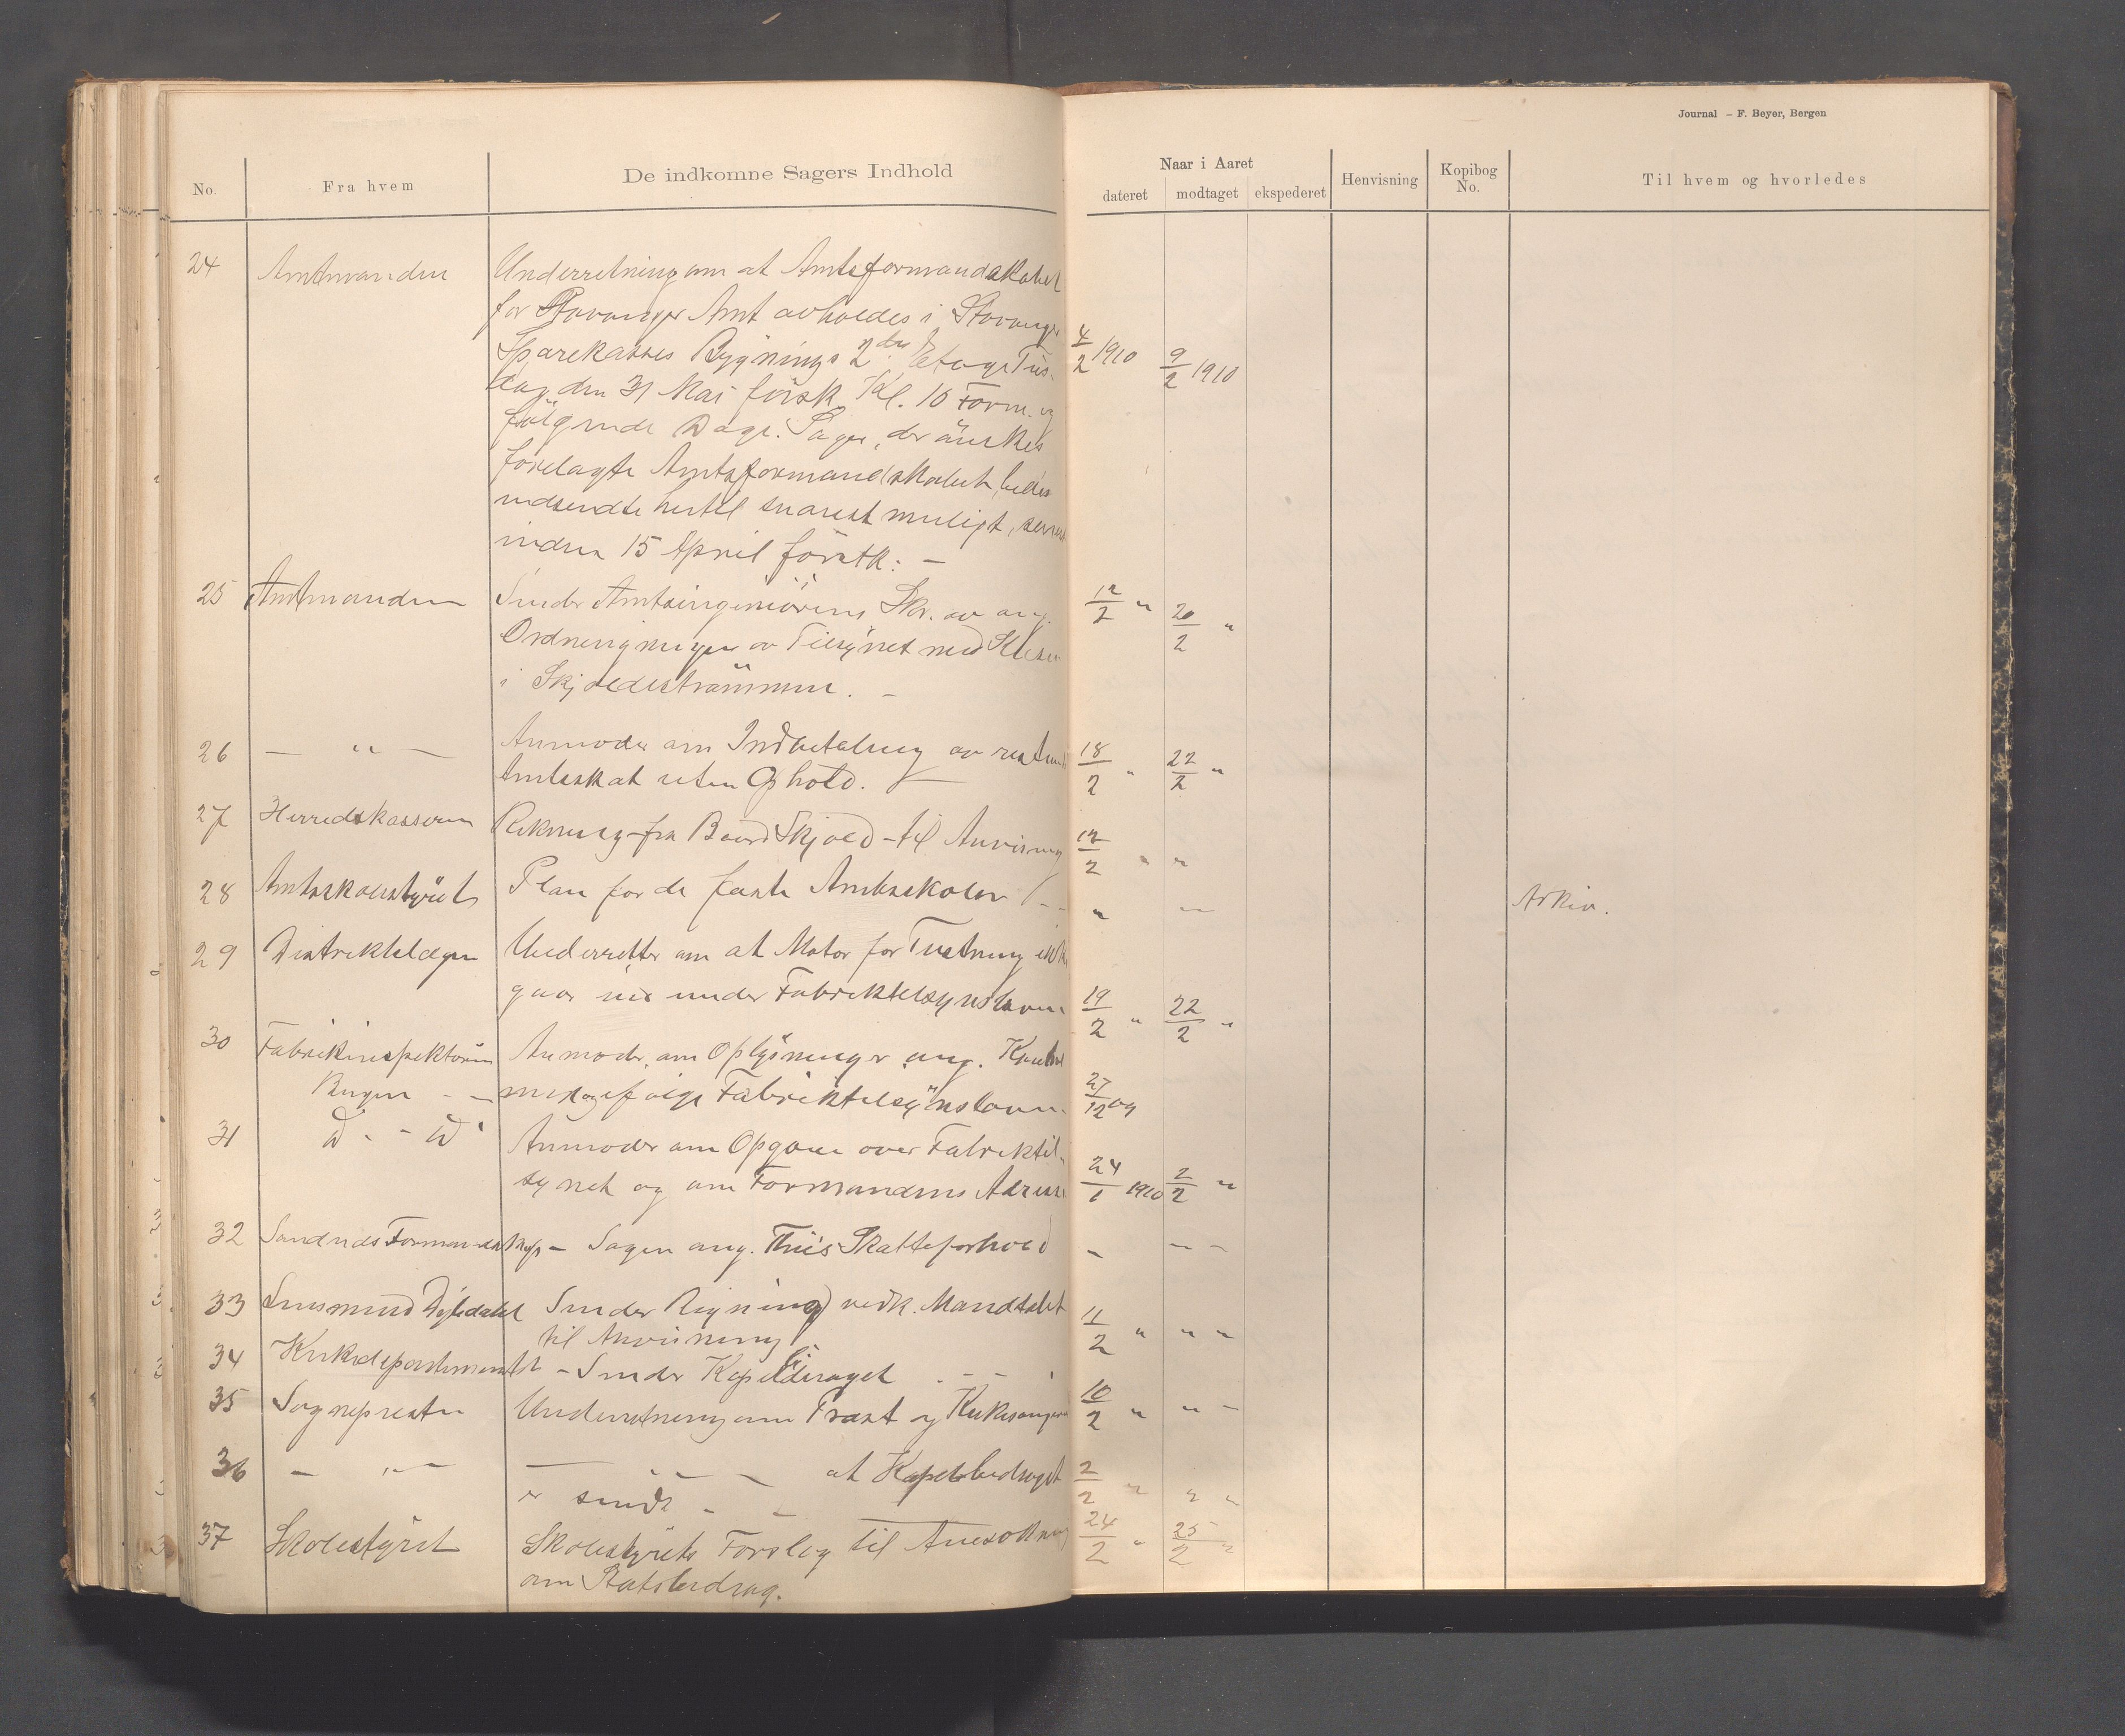 Journal – F. Beyer, Bergen
No.
Fra hvem
De indkomne Sagers Indhold
Naar i Aaret
dateret
modtaget
ekspederet
Henvisning
Kopibog
No.
Til hvem og hvorledes
24 Amtmanden Underretning om at Amtsformandskabet
for Stavanger Amt avholdes i Stavanger
Sparekasses Bygnings 2den Etage Tirs- 4/2 1910 9/2 1910
dag den 31 Mai førsk. Kl. 10 Form. og
følgende Dage. Sager, der ønskes
forelagte Amtsformandskabet, bedes
indsendte hertil snarest muligt, senest
inden 15 April førstk. –
25 Amtmanden Sender Amtsingeniørens Skr. av ang. 12/2 " 20/2 "
av Tilsynet med
i Skjoldestrømmen. –
26 — " — Anmoder om Indbetaling av 18/2 " 22/2 "
Amtsskat uten Ophold.
27 Herredskasseren Rekning fra Baard Skjold – til Anvisning 12/2 " "
28 Amtsskolestyret Plan for de faste Amtsskoler " — Arkiv.
29 Distriktslægen Underretter om at Motor for Tustning ikke
gaar ind under Fabriktilsynsloven 19/2 " 22/2 "
30 Fabrikinspektøren Anmoder om Oplysninger ang.
Bergen – – Fabriktilsynsloven. 27/12 09
31 D – – D Anmoder om Opgave over Fabriktil-
synet og om Formandens Adresse 24/1 1910 2/2 "
32 Formandskap – Sagen ang. Skatteforhold – — –
33 Lensmand Sender Regning vedk. Mandtallet 11/2 " " "
til Anvisning
34 Kirkedepartementet – Sender
35 Sognepresten Underretning om Prest og Kirkesanger 10/2 " " –
36 – " – — " – – at Kapelbidraget 2/2 " " "
er sendt –
37 Skolestyret Skolestyrets Forslag til Ansøkning 24/2 " 25/2 "
om Statsbidrag.